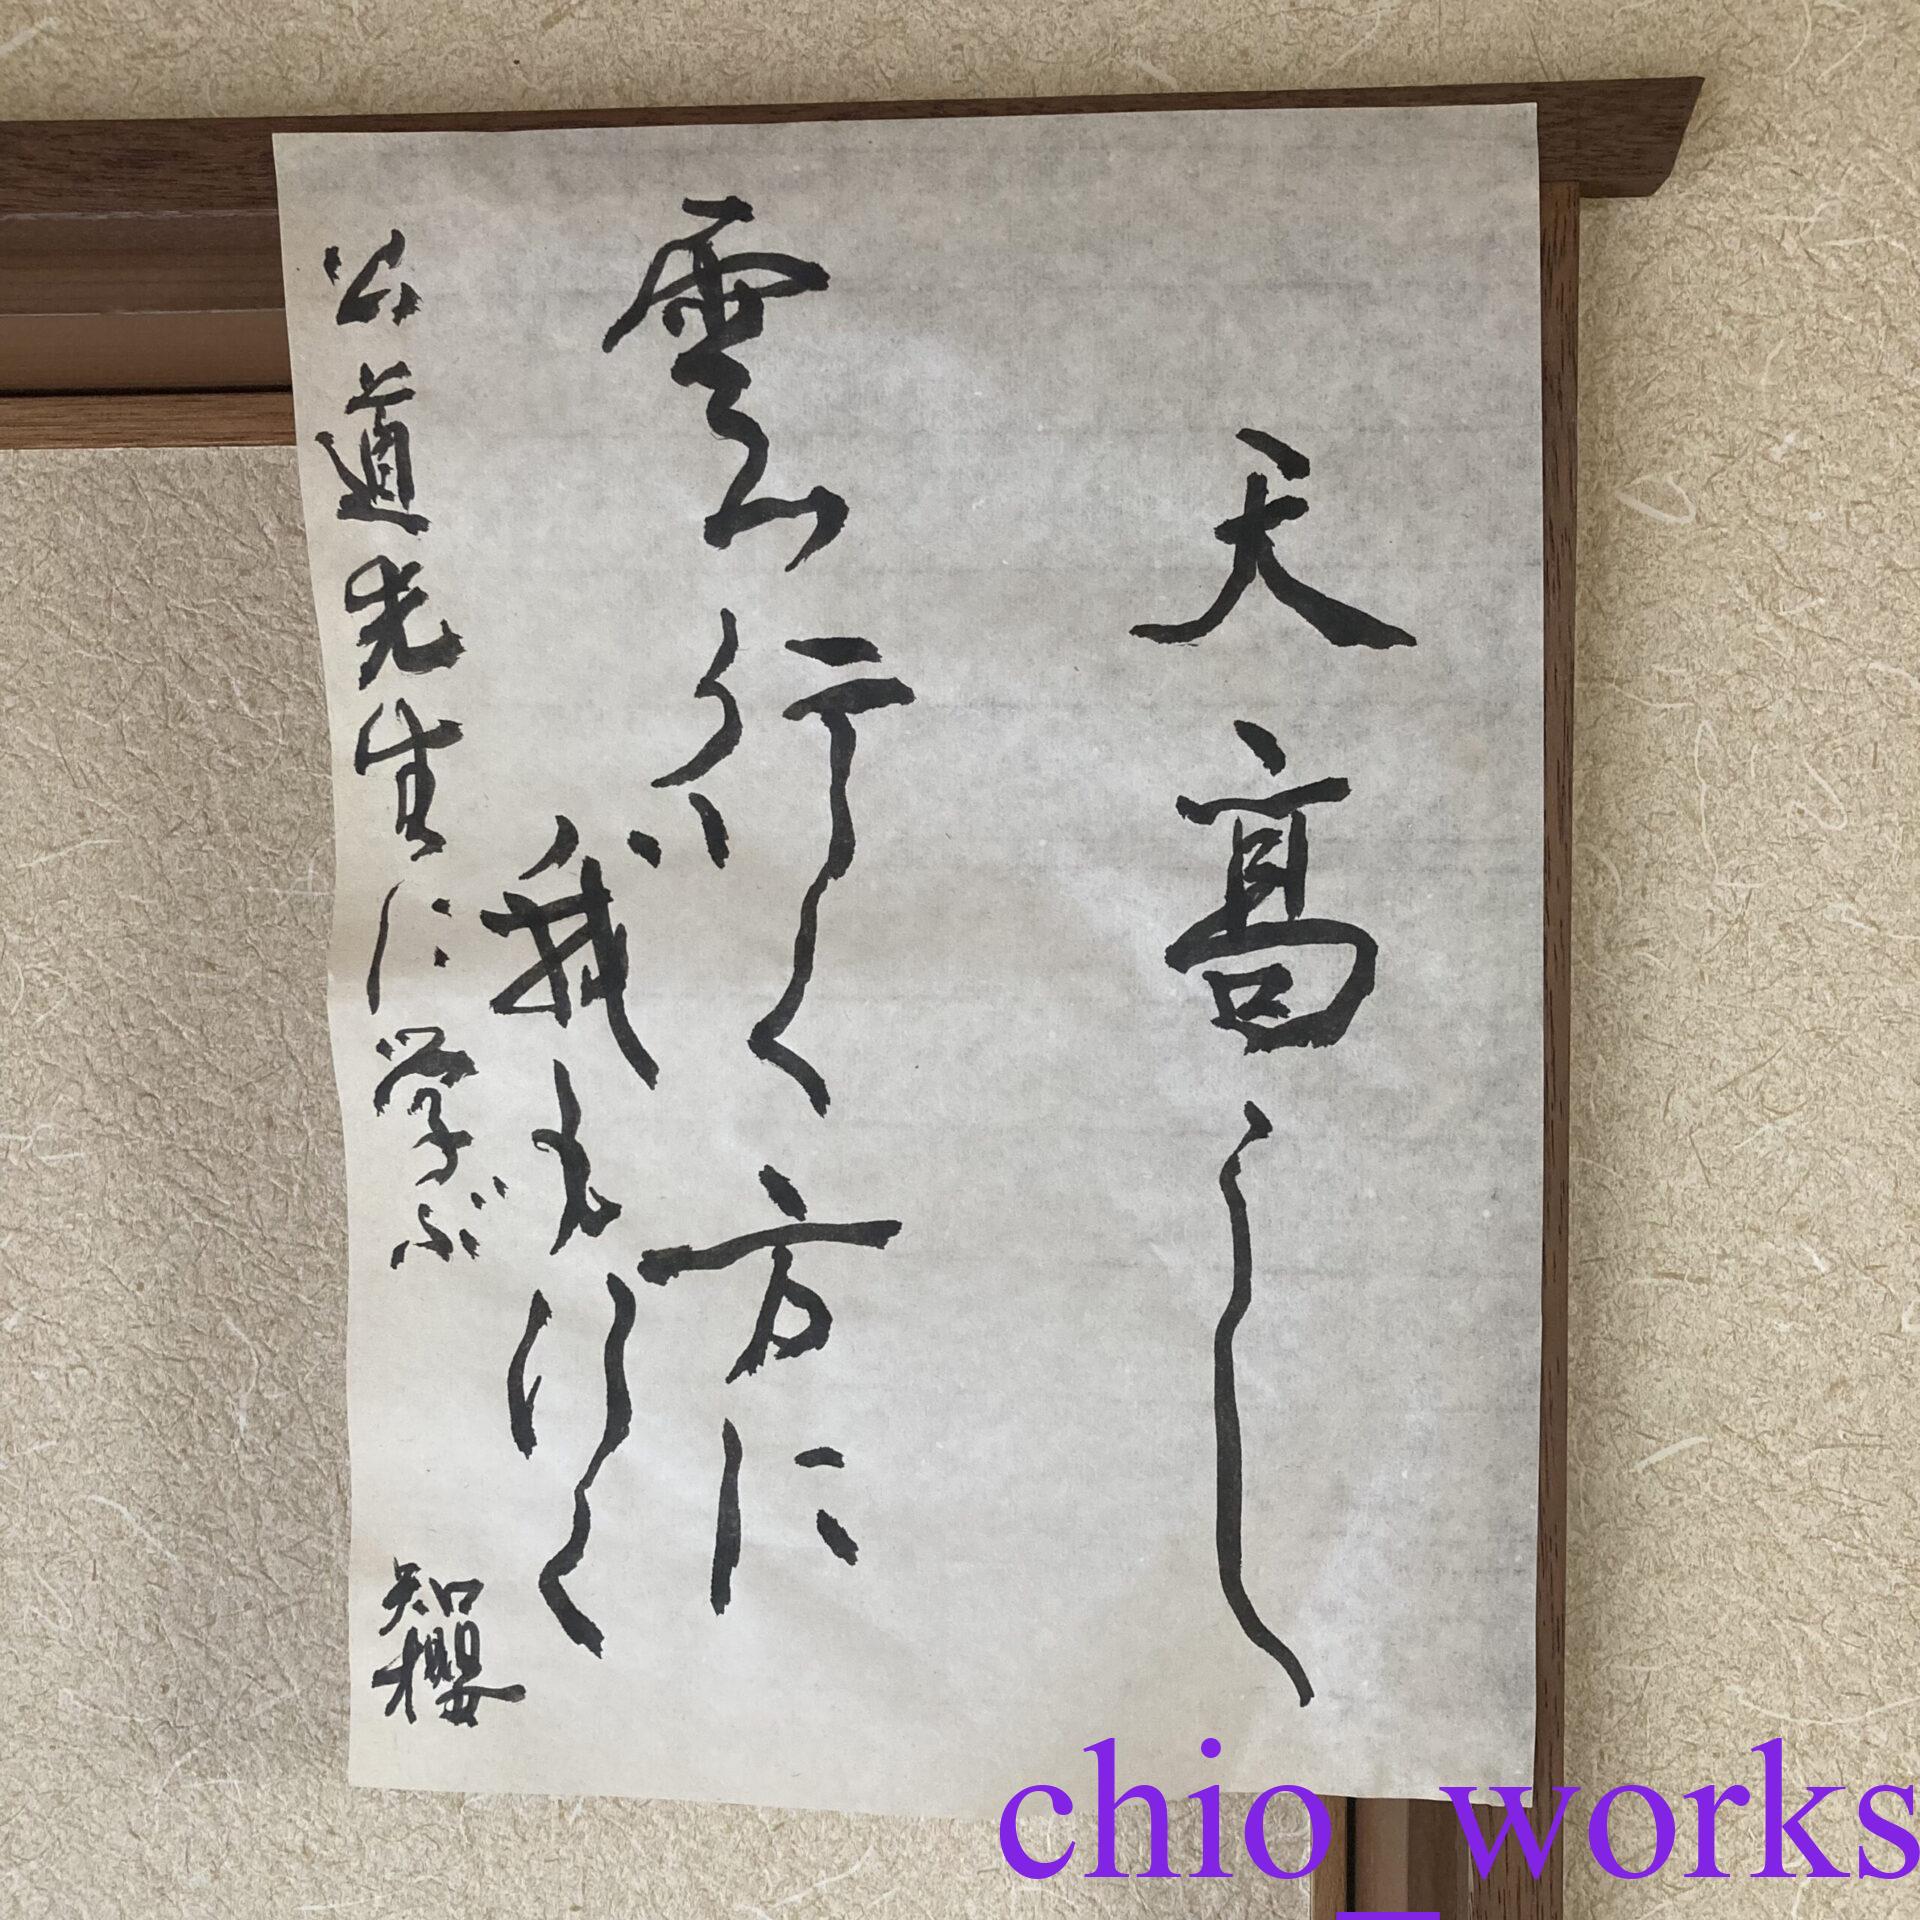 天高し
雲行く方に
我も行く
公道先生に学ぶ
知櫻
chio_works